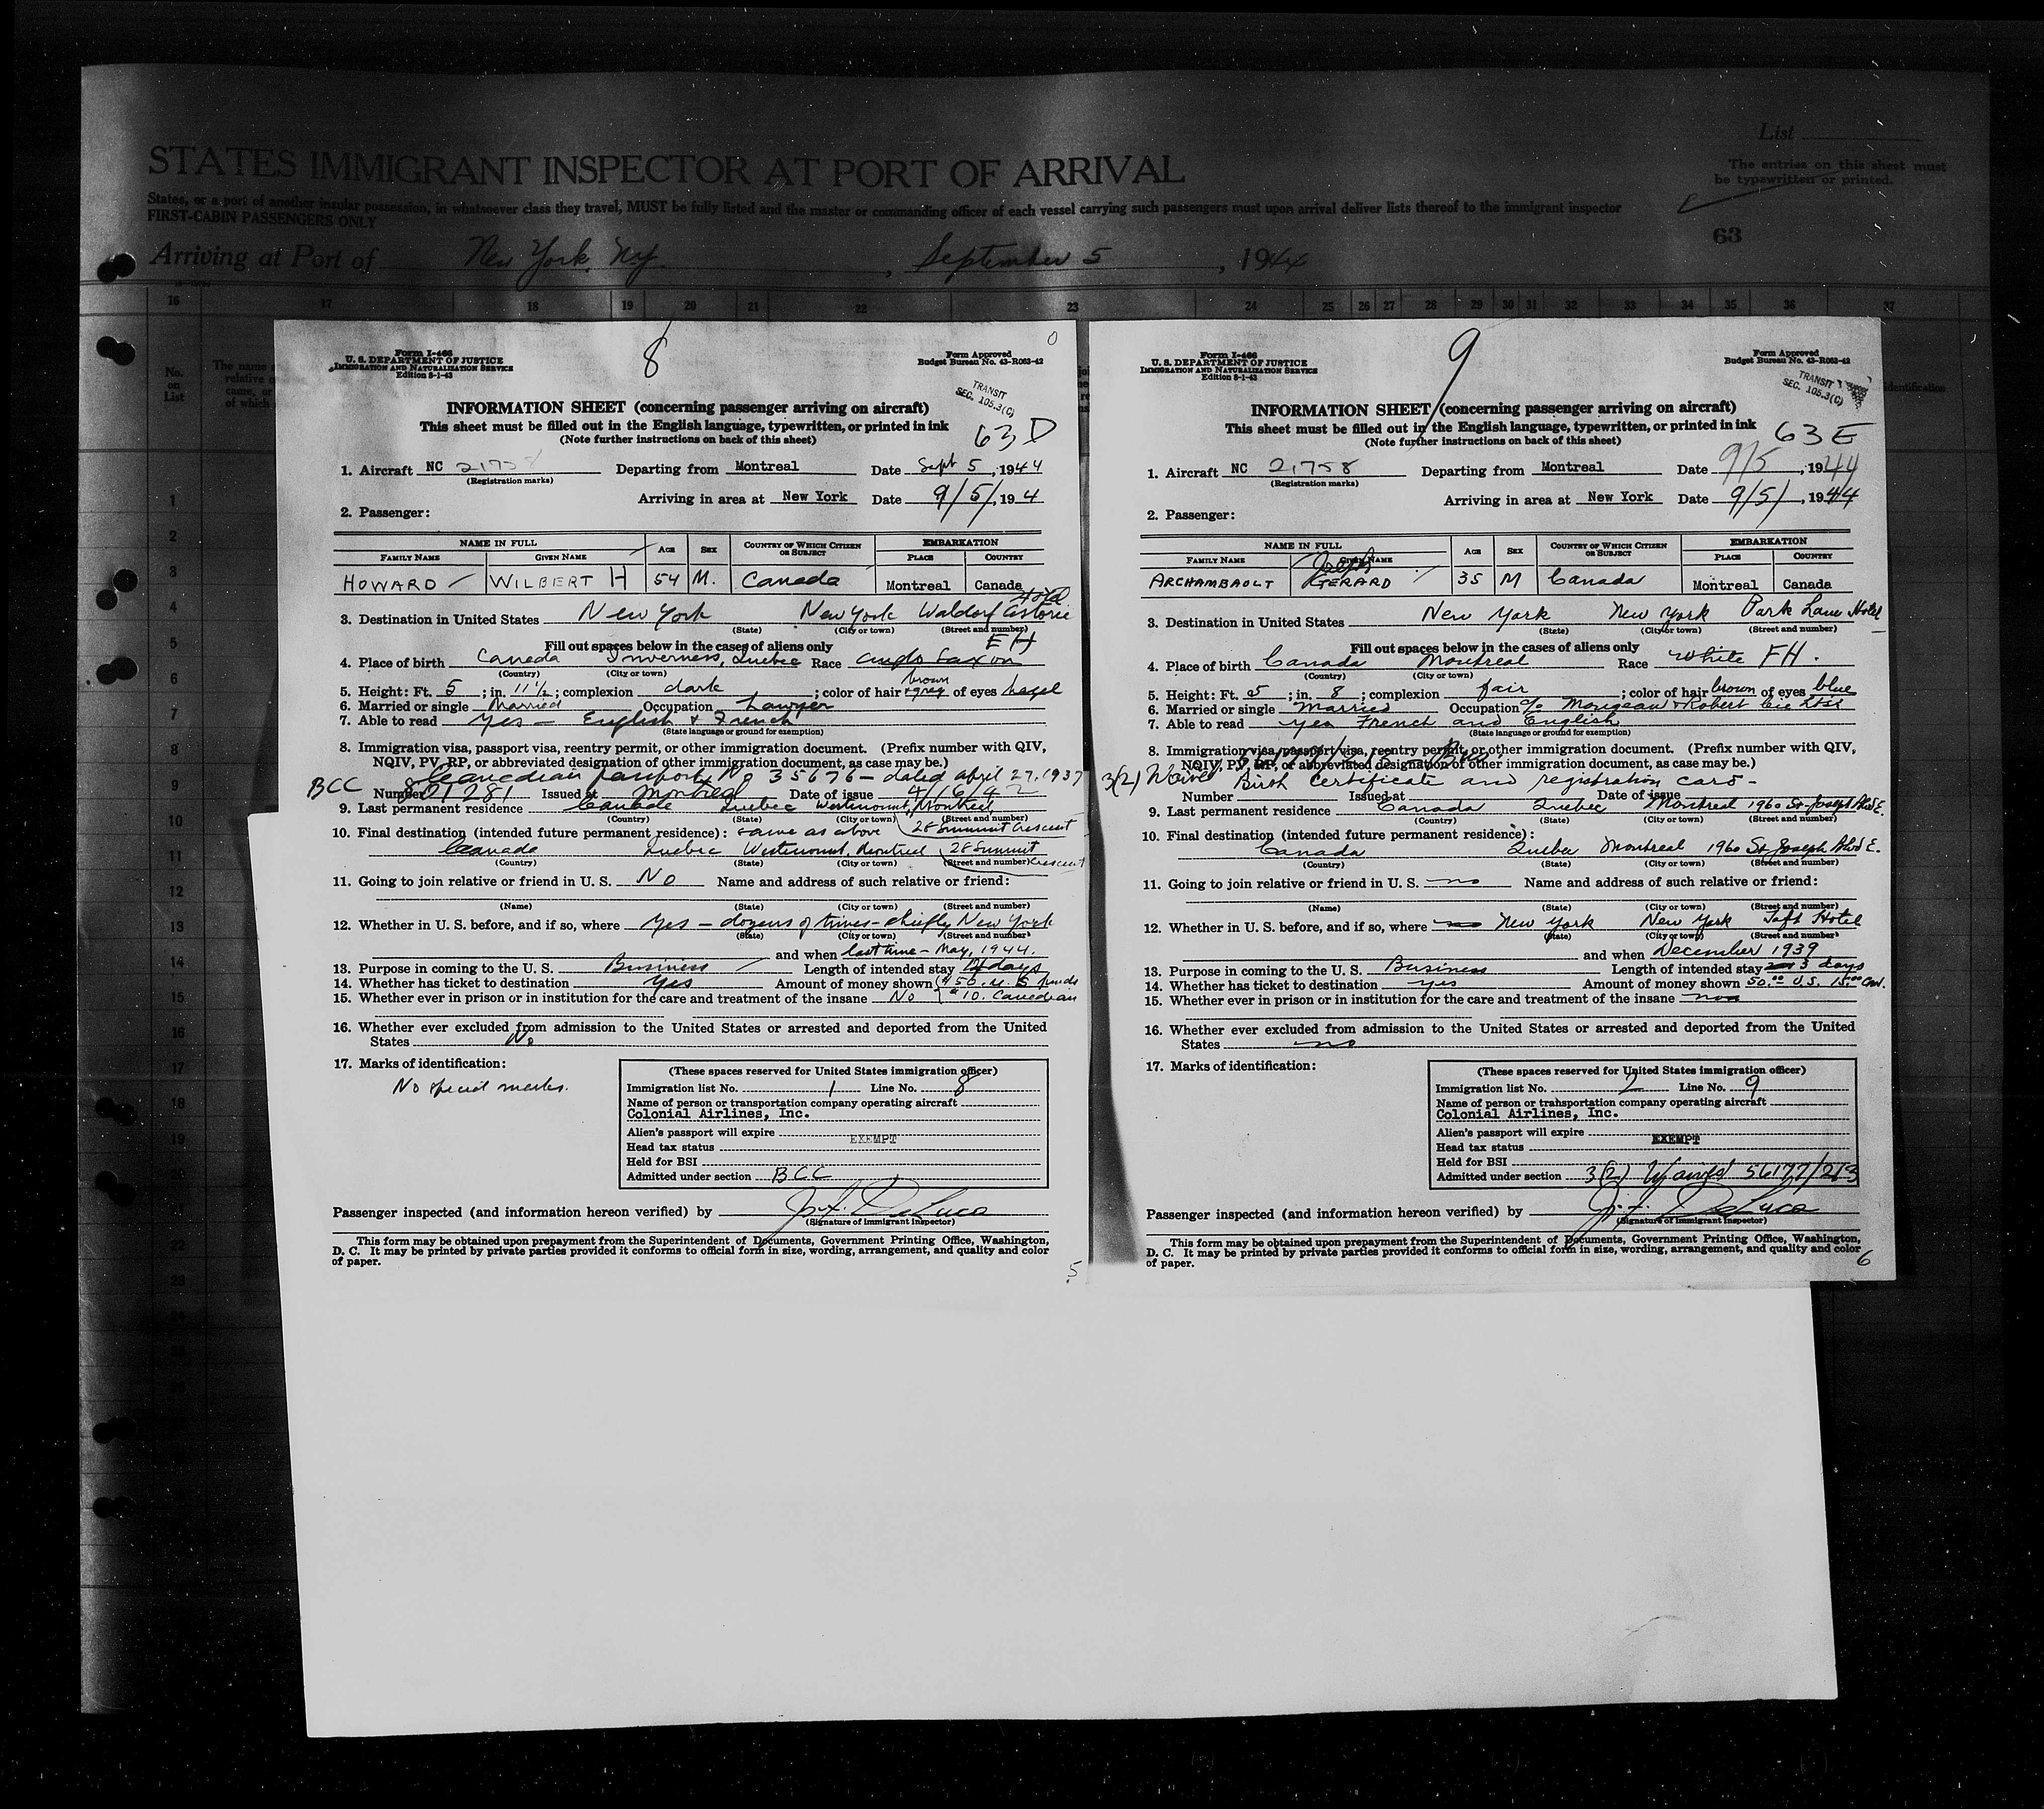 List
STATES IMMIGRANT INSPECTOR AT PORT OF ARRIVAL
The entries on this sheet must
be typewritten or printed.
States, or a port of another insular possession, in whatsoever class they travel, MUST be fully listed and the master or commanding officer of each vessel carrying such passengers must upon arrival deliver lists thereof to the immigrant inspector
FIRST-CABIN PASSENGERS ONLY
63
Arriving at Port of New York, N.Y. , September 5 , 1944
16 17 18 19 20 21 22 23 24 25 26 27 28 29 30 31 32 33 34 35 36 37
No.
on
List
1
2
3
4
5
6
7
8
9
10
11
12
13
14
15
16
17
18
19
20
21
22
23
8
Form I-466
U. S. DEPARTMENT OF JUSTICE
IMMIGRATION AND NATURALIZATION SERVICE
Edition 8-1-43
Form Approved
Budget Bureau No. 43-R063-42
TRANSIT
SEC. 105.3(C)
INFORMATION SHEET (concerning passenger arriving on aircraft)
This sheet must be filled out in the English language, typewritten, or printed in ink
(Note further instructions on back of this sheet)
63 D
1. Aircraft NC 21758 Departing from Montreal Date Sept 5, 1944
(Registration marks)
Arriving in area at New York Date 9/5/, 194
2. Passenger:
NAME IN FULL AGE SEX COUNTRY OF WHICH CITIZEN OR SUBJECT EMBARKATION
FAMILY NAME GIVEN NAME PLACE COUNTRY
HOWARD WILBERT H 54 M. Canada Montreal Canada
3. Destination in United States New York New York Waldorf Astoria Hotel
(State) (City or town) (Street and number)
Fill out spaces below in the cases of aliens only EH
4. Place of birth Canada Inverness, Quebec Race Anglo Saxon
(Country) (City or town)
5. Height: Ft. 5 ; in. 11½ ; complexion dark ; color of hair brown + gray of eyes hazel
6. Married or single Married Occupation Lawyer
7. Able to read Yes — English & French
(State language or ground for exemption)
8. Immigration visa, passport visa, reentry permit, or other immigration document. (Prefix number with QIV,
NQIV, PV, RP, or abbreviated designation of other immigration document, as case may be.)
Canadian passport No 35676 — dated April 27, 1937
BCC Number 801281 Issued at Montreal Date of issue 4/16/42
9. Last permanent residence Canada Quebec Westmount, Montreal, 28 Summit Crescent
(Country) (State) (City or town) (Street and number)
10. Final destination (intended future permanent residence): same as above
Canada Quebec Westmount, Montreal 28 Summit Crescent
(Country) (State) (City or town) (Street and number)
11. Going to join relative or friend in U. S. No Name and address of such relative or friend:
(Name) (State) (City or town) (Street and number)
12. Whether in U. S. before, and if so, where Yes — dozens of times — chiefly New York
(State) (City or town) (Street and number)
and when last time — May, 1944.
13. Purpose in coming to the U. S. Business Length of intended stay days
14. Whether has ticket to destination Yes Amount of money shown $50. U.S. funds
15. Whether ever in prison or in institution for the care and treatment of the insane No $10. Canadian
16. Whether ever excluded from admission to the United States or arrested and deported from the United
States No
17. Marks of identification:
No special marks.
(These spaces reserved for United States immigration officer)
Immigration list No. 1 Line No. 8
Name of person or transportation company operating aircraft
Colonial Airlines, Inc.
Alien's passport will expire
Head tax status EXEMPT
Held for BSI
Admitted under section BCC
Passenger inspected (and information hereon verified) by J. F. DeLuca
(Signature of immigrant inspector)
This form may be obtained upon prepayment from the Superintendent of Documents, Government Printing Office, Washington,
D. C. It may be printed by private parties provided it conforms to official form in size, wording, arrangement, and quality and color
of paper.
5
9
Form I-466
U. S. DEPARTMENT OF JUSTICE
IMMIGRATION AND NATURALIZATION SERVICE
Edition 8-1-43
Form Approved
Budget Bureau No. 43-R063-42
TRANSIT
SEC. 105.3(C)
INFORMATION SHEET (concerning passenger arriving on aircraft)
This sheet must be filled out in the English language, typewritten, or printed in ink
(Note further instructions on back of this sheet)
63 E
1. Aircraft NC 21758 Departing from Montreal Date 9/5, 1944
(Registration marks)
Arriving in area at New York Date 9/5/, 1944
2. Passenger:
NAME IN FULL AGE SEX COUNTRY OF WHICH CITIZEN OR SUBJECT EMBARKATION
FAMILY NAME GIVEN NAME PLACE COUNTRY
ARCHAMBAULT Joseph GERARD 35 M Canada Montreal Canada
3. Destination in United States New York New York Park Lane Hotel
(State) (City or town) (Street and number)
Fill out spaces below in the cases of aliens only
4. Place of birth Canada Montreal Race White FH.
(Country) (City or town)
5. Height: Ft. 5 ; in. 8 ; complexion fair ; color of hair brown of eyes blue
6. Married or single Married Occupation c/o Mongeau & Robert Cie Ltée
7. Able to read yes French and English
(State language or ground for exemption)
8. Immigration visa, passport visa, reentry permit, or other immigration document. (Prefix number with QIV,
NQIV, PV, RP, or abbreviated designation of other immigration document, as case may be.)
3(2) Waived Birth certificate and registration card —
Number Issued at Date of issue
9. Last permanent residence Canada Quebec Montreal 1960 St-Joseph Blvd E.
(Country) (State) (City or town) (Street and number)
10. Final destination (intended future permanent residence):
Canada Quebec Montreal 1960 St-Joseph Blvd E.
(Country) (State) (City or town) (Street and number)
11. Going to join relative or friend in U. S. no Name and address of such relative or friend:
(Name) (State) (City or town) (Street and number)
12. Whether in U. S. before, and if so, where New York New York Taft Hotel
(State) (City or town) (Street and number)
and when December 1939
13. Purpose in coming to the U. S. Business Length of intended stay 3 days
14. Whether has ticket to destination yes Amount of money shown 50.00 U.S. 15.00 Can.
15. Whether ever in prison or in institution for the care and treatment of the insane non
16. Whether ever excluded from admission to the United States or arrested and deported from the United
States no
17. Marks of identification:
(These spaces reserved for United States immigration officer)
Immigration list No. 2 Line No. 9
Name of person or transportation company operating aircraft
Colonial Airlines, Inc.
Alien's passport will expire
Head tax status EXEMPT
Held for BSI
Admitted under section 3(2) Waived 56177/213
Passenger inspected (and information hereon verified) by J. F. DeLuca
(Signature of immigrant inspector)
This form may be obtained upon prepayment from the Superintendent of Documents, Government Printing Office, Washington,
D. C. It may be printed by private parties provided it conforms to official form in size, wording, arrangement, and quality and color
of paper.
6